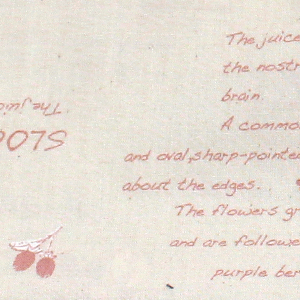 The juice
the nostr
brain.
A commo
and oval, sharp-pointe
about the edges.
The flowers gr
and are followe
purple ber